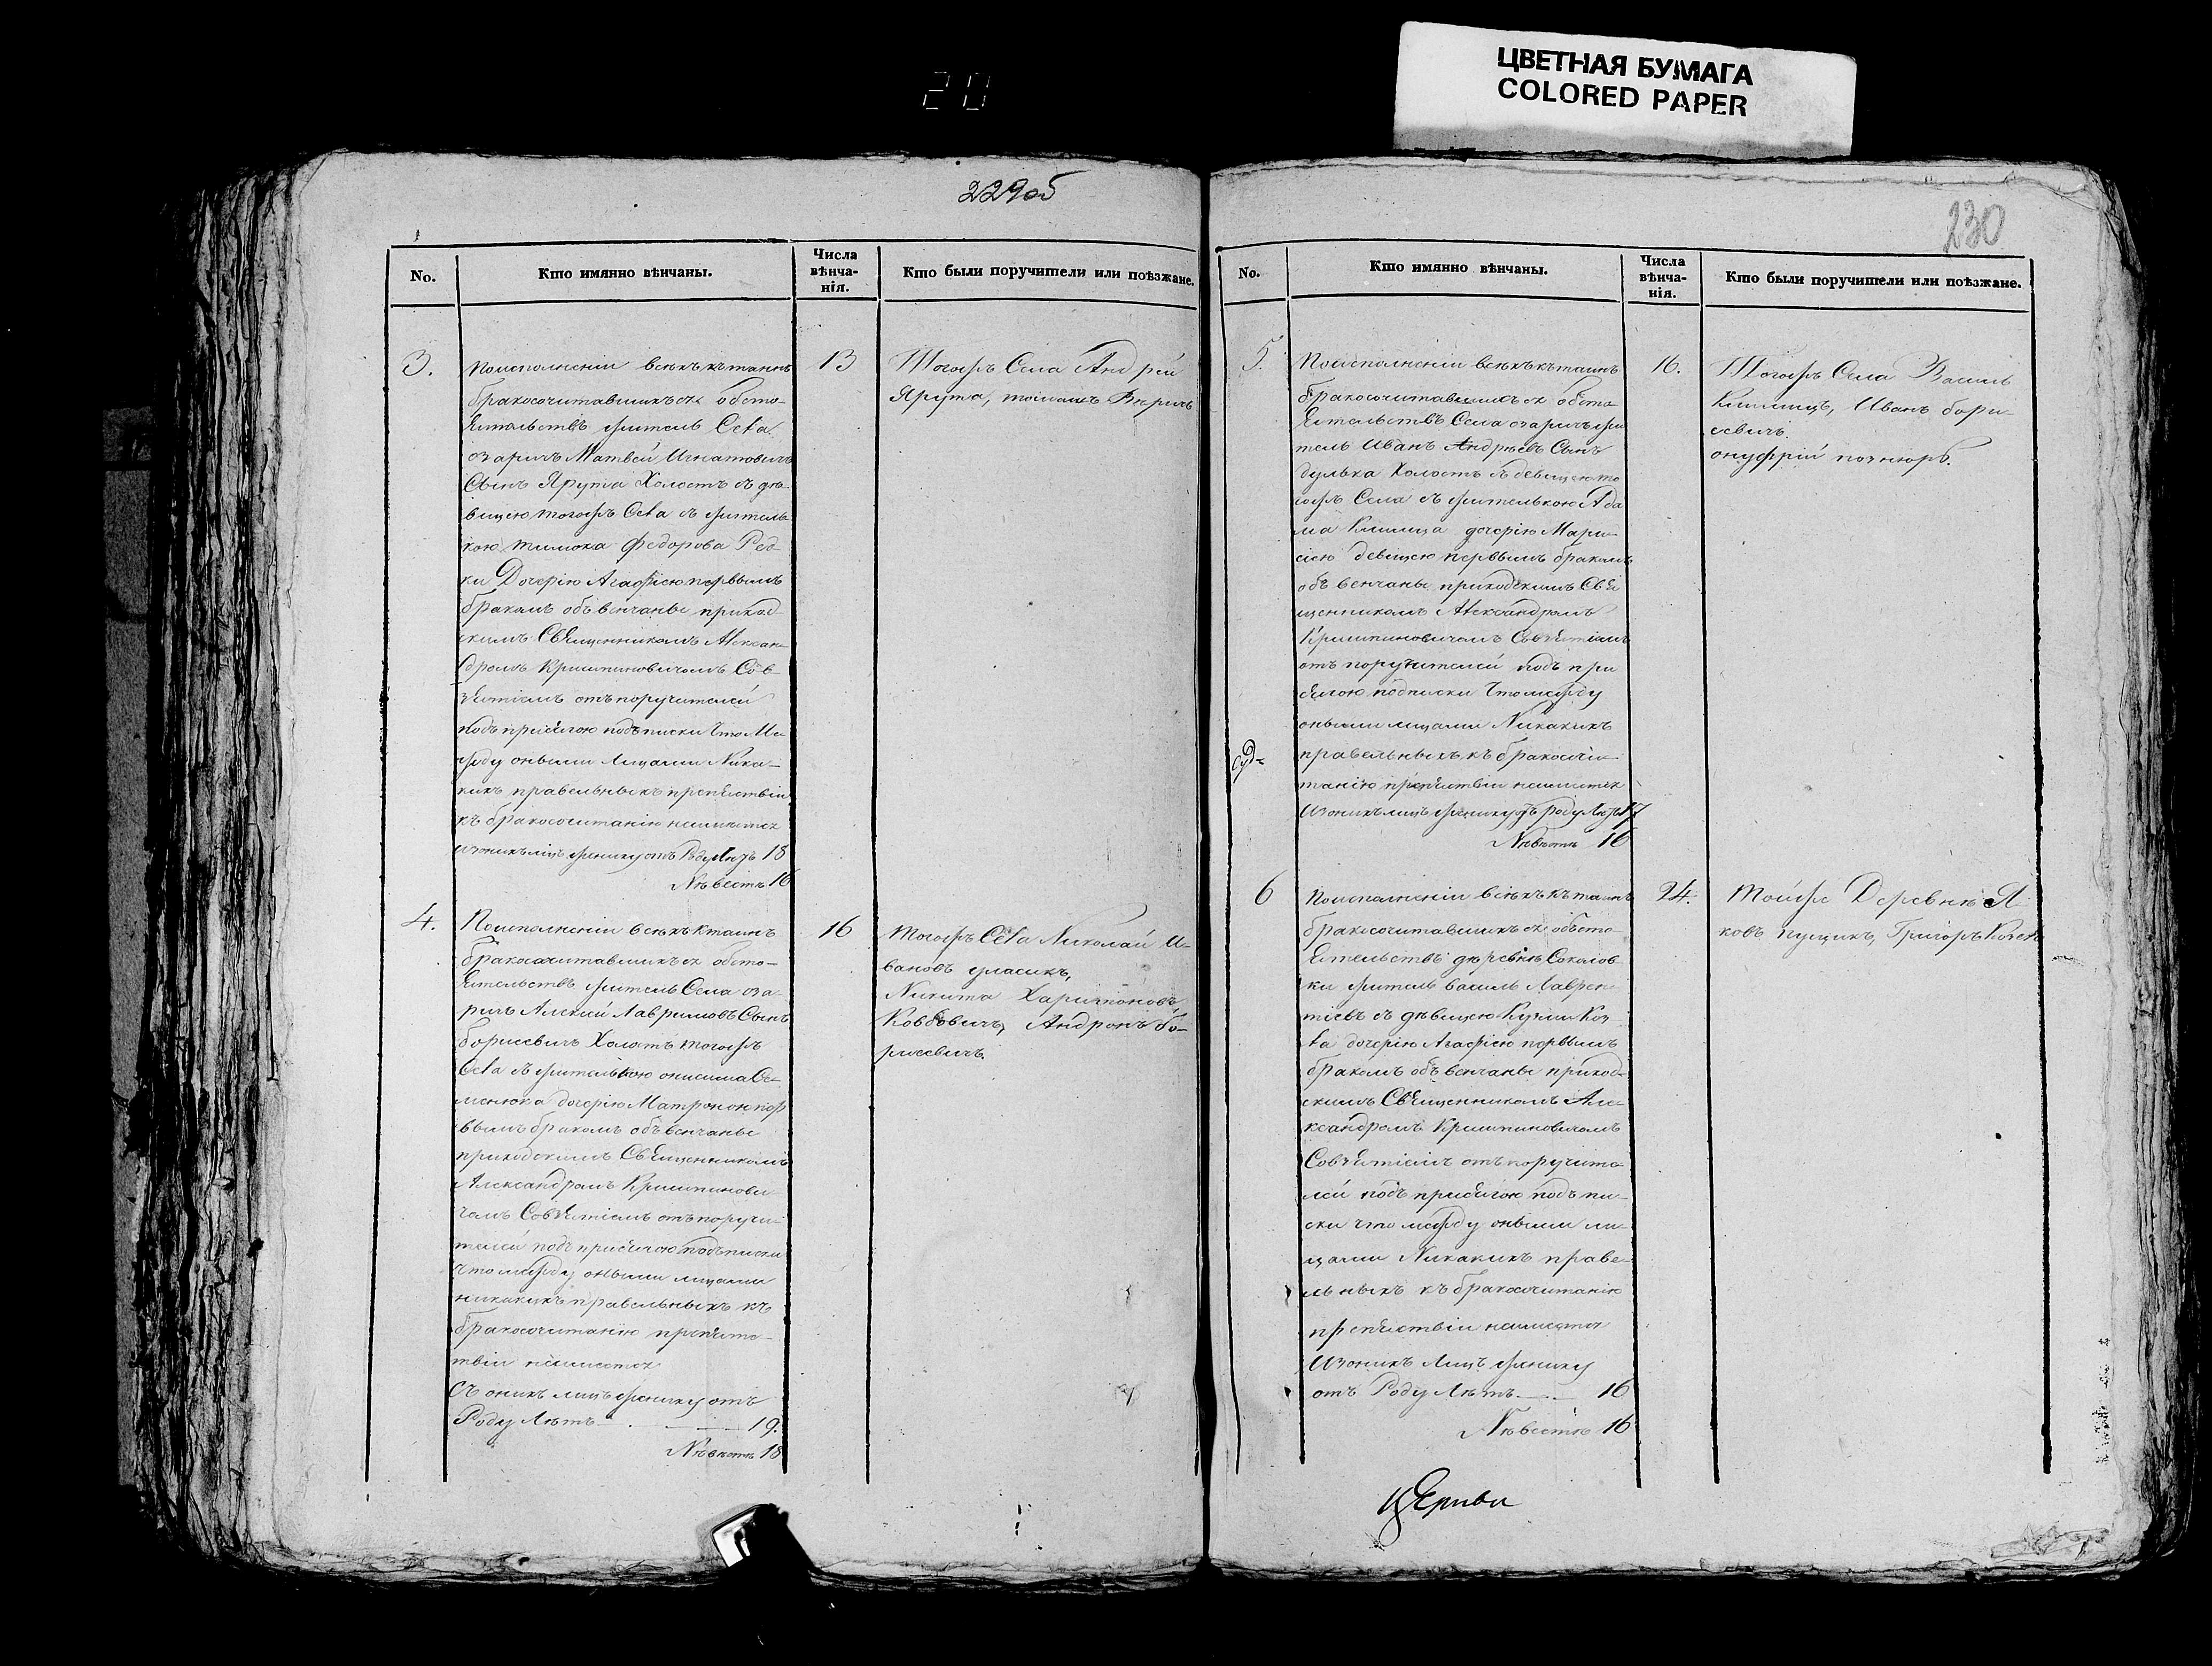 20
ЦВЕТНАЯ БУМАГА
COLORED PAPER
229об
No.
Кто имянно вѣнчаны.
Числа вѣнча-нія.
Кто были поручители или поѣзжане.
3.
Поисполненіи всѣхъ къ таинъ
бракосочитавшихъся обсто-
ятельствъ житель Села
озаричъ Матвей Игнатовичъ
Сынъ Ярута Холостъ съ дѣ-
вицею тогожъ Села съ житель
кою Тимоха Федорова Ред-
ки Дочерію Агафіею первымъ
бракомъ объвенчаны приход-
скимъ Священникомъ Алексан-
дромъ Криштиновичомъ Со в-
зятіемъ отъ поручителей
подъ присягою подъписки Что Ме-
жду оными Лицами Ника-
кихъ правельныхъ препятствіи
къ бракосочитанію неимется
изонихъ лицъ жениху отъ Роду лѣтъ 18
Нѣвестѣ 16
13
Тогожъ Села Андрей
Ярута,
4.
Поисполненіи всѣхъ ктаинъ
бракосочитавшихъся обсто-
ятельствъ житель Села оза-
ричъ Алексей Лавримовъ Сынъ
борисевичъ Холостъ тогожъ
Села съ жителькою онисима Се-
менюка дочерію Матроною пер
вымъ бракомъ объвенчаны
приходскимъ Священникомъ
Александромъ Криштинови-
чомъ Совзятіемъ отъ поручи-
телей подъ присягою подъписки
Что между оными лицами
никакихъ правельныхъ къ
бракосочитанію препятс-
твіи неимется
Съ онихъ лицъ жениху отъ
Роду лѣтъ 19.
Нѣвестѣ 18
16
тогожъ Села Николай И-
вановъ уласикъ,
Никита Харитоновъ
Ковбовичъ, Андронъ бо-
рисевичъ.
230
No.
Кто имянно вѣнчаны.
Числа вѣнча-нія.
Кто были поручители или поѣзжане.
5.
Поисполненіи всѣхъ къ таинъ
бракосочитавшихъся обсто-
ятельствъ Села озаричъ жи
тель Иванъ Андрѣевъ Сынъ
дулька Холостъ съ девицею то
гожъ Села съ жителькою Ада
ма Климца дочерію Мари-
сею девицею первымъ бракомъ
объвенчаны приходскимъ Свя
щенникомъ Александромъ
Криштиновичомъ Совзятіемъ
отъ поручителей подъ при
сягою подписки Что между
оными лицами Никакихъ
правельныхъ къ бракосочи-
танію препятствіи неимется
Изонихъ лицъ жениху отъ роду лѣтъ 17
Нѣвестѣ 16
16.
Тогожъ Села Василь
Климецъ, Иванъ бори-
севичъ.
онуфрій
6
Поисполненіи всѣхъ къ таинъ
бракосочитавшихъся обсто-
ятельствъ деревнѣ Соколов
ки житель василь Лаврен-
тіевъ съ дѣвицею Кузми Коз
ла дочерію Агафіею первымъ
бракомъ объвенчаны приход-
скимъ Священникомъ Але-
ксандромъ Криштиновичомъ
Совзятіемъ отъ поручите-
лей подъ присягою подъпи-
ски что между оными ли-
цами Никакихъ праве-
льныхъ къ бракосочитанію
препятствіи неимется
Изонихъ Лицъ жениху
отъ Роду лѣтъ 16
Нѣвестѣ 16
24.
Тойже Деревнѣ Я
ковъ пущикъ, Григоръ
Церкви